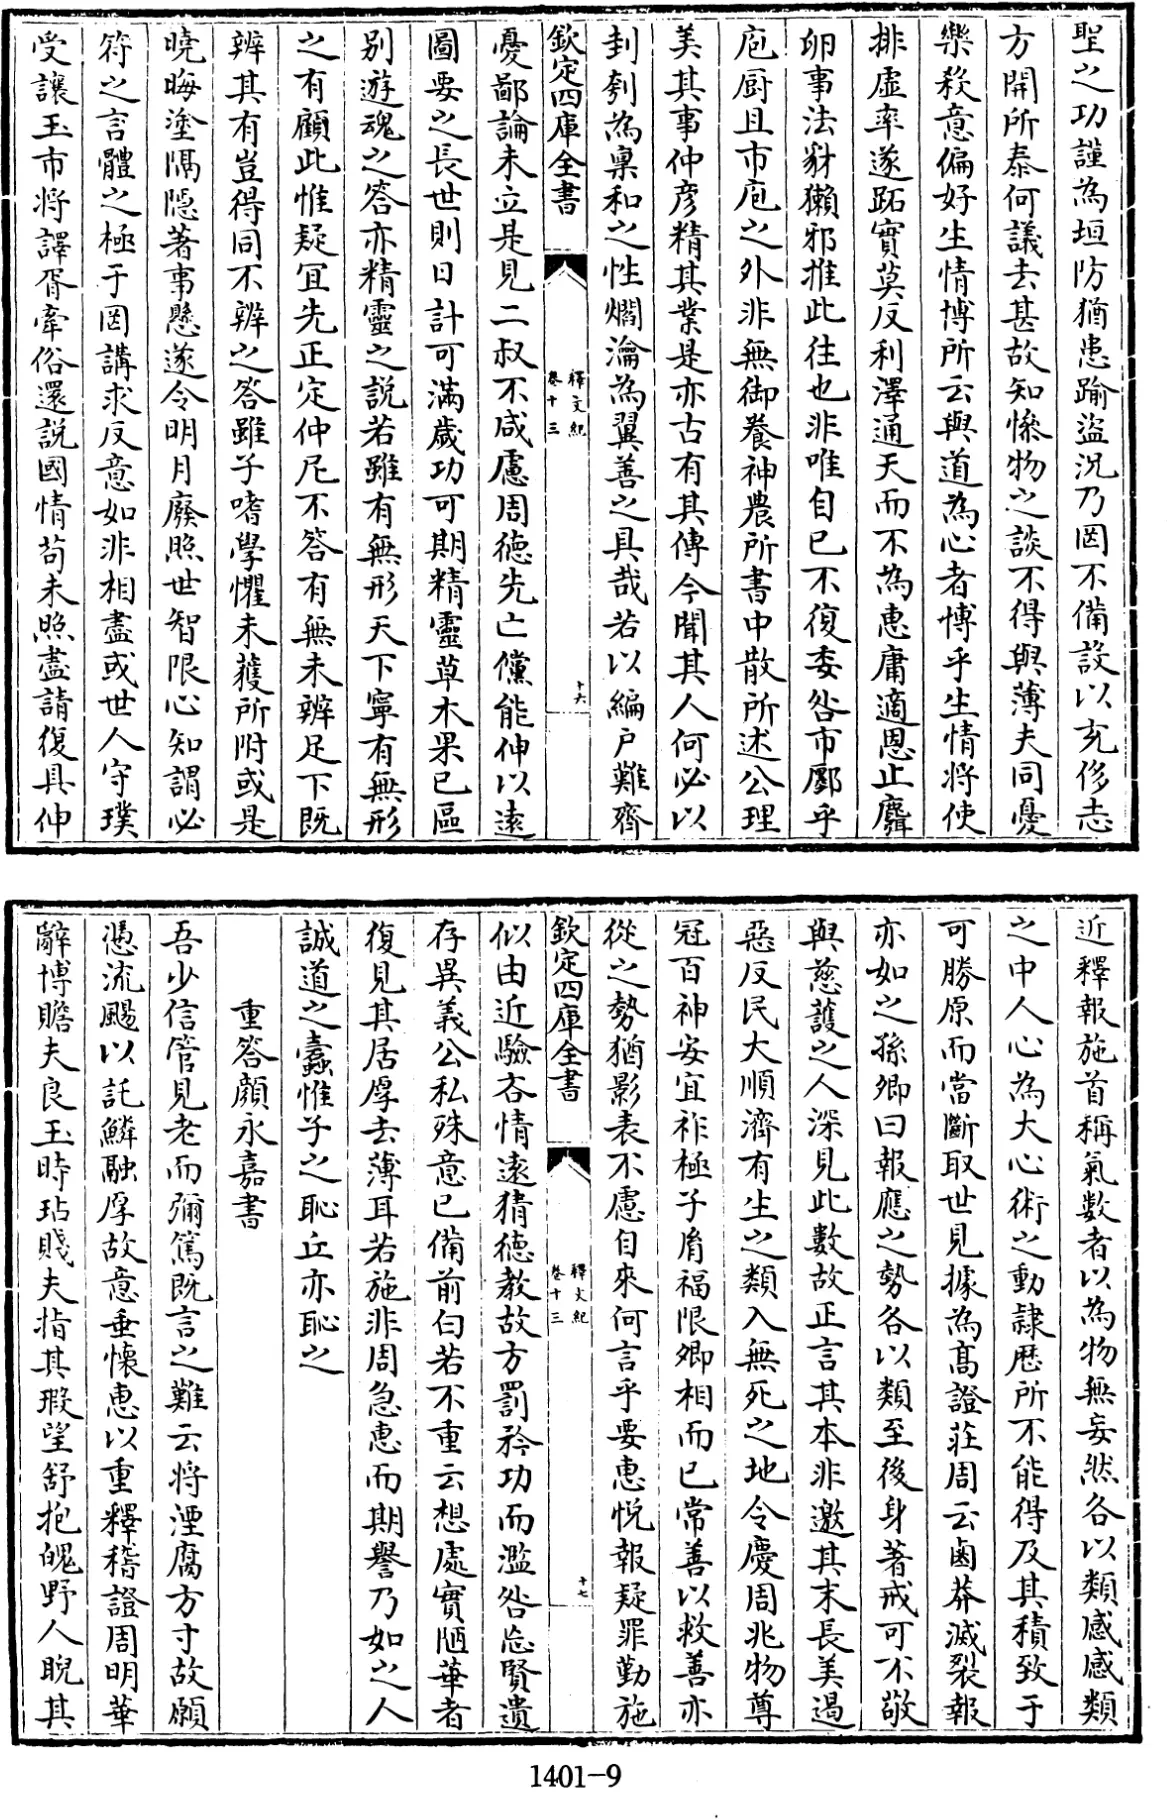 聖之功謹為垣防猶患踰盜況乃罔不備設以充侈志
方開所泰何議去甚故知慘物之談不得與薄夫同憂
樂殺意偏好生情博所云與道為心者博乎生情將使
排虛率遂跖實莫反利澤通天而不為惠庸適恩止麛
卵事法豺獺邪推此往也非唯自已不復委咎市廛乎
庖厨且市庖之外非無御養神農所書中散所述公理
美其事仲彥精其業是亦古有其傳今聞其人何必以
刲刳為稟和之性爓瀹為翼善之具哉若以編戸難齊
欽定四庫全書
釋文紀
卷十三
十六
憂鄙論未立是見二叔不咸慮周德先亡儻能伸以遠
圖要之長世則日計可滿歲功可期精靈草木果已區
别遊魂之答亦精靈之說若雖有無形天下寧有無形
之有顧此惟疑宜先正定仲尼不答有無未辨足下既
辨其有豈得同不辨之答雖子嗜學懼未䕶所附或是
曉晦塗隔隱著事懸遂令明月廢照世智限心知謂必
符之言體之極于罔講求反意如非相盡或世人守璞
受讓玉市將譯胥牽俗還說國情苟未照盡請復具伸
近釋報施首稱氣數者以為物無妄然各以類感感類
之中人心為大心術之動隷厯所不能得及其積致于
可勝原而當斷取世見據為髙證莊周云鹵莽滅裂報
亦如之孫卿曰報應之勢各以類至後身著戒可不敬
與慈護之人深見此數故正言其本非邀其末長美遏
惡反民大順濟有生之類入無死之地令慶周兆物尊
冠百神安宜祚極子胤福限卿相而已常善以救善亦
從之勢猶影表不慮自來何言乎要惠悅報疑罪勤施
欽定四庫全書
釋文紀
卷十三
十七
似由近驗吝情遠猜德教故方罰矜功而濫咎忘賢遺
存異義公私殊意已備前白若不重云想處實陋華者
復見其居厚去薄耳若施非周急惠而期譽乃如之人
誠道之蠹惟子之恥丘亦恥之
重答顔永嘉書
吾少信管見老而彌篤既言之難云將湮腐方寸故願
憑流颺以託鱗融厚故意垂懷惠以重釋稽證周明華
辭博贍夫良玉時玷賤夫指其瑕望舒抱魄野人睨其
1401-9